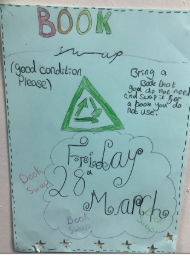 BOOK
Swap
(good condition
Please)
Bring a
Book that
you do not need
and swap it for
a book you do
not use!
Friday
28th
March
Book
Swap
Book
Swap